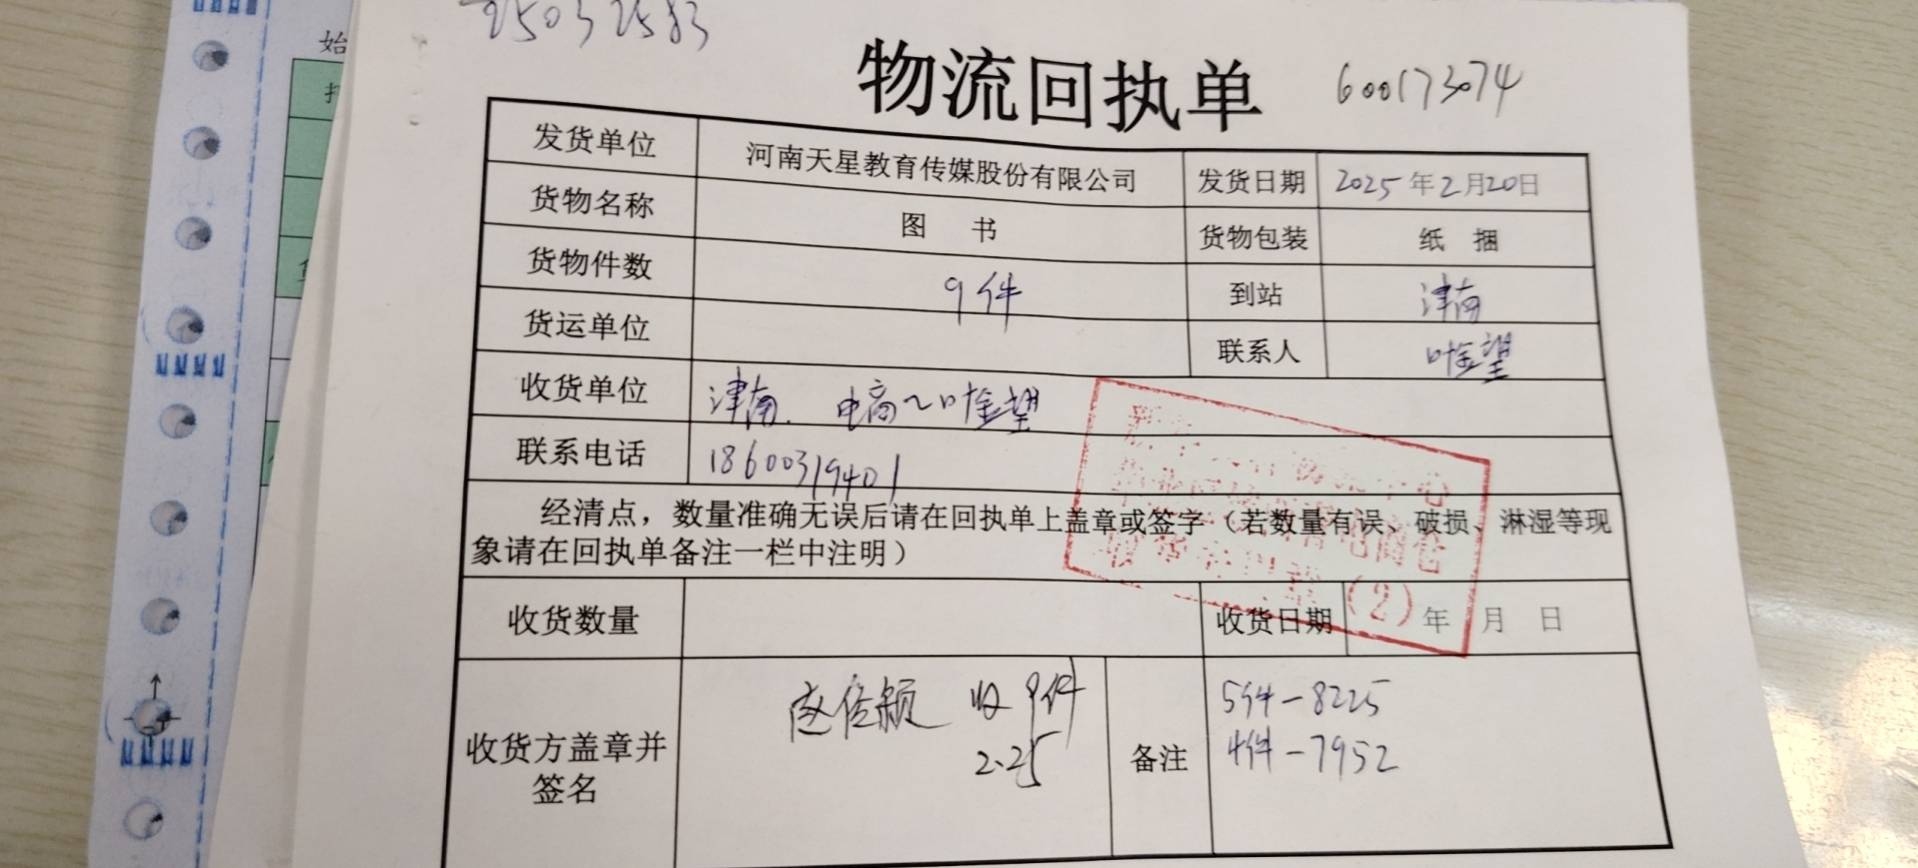 始
25032583
物流回执单
600173074
发货单位 河南天星教育传媒股份有限公司 发货日期 2025年2月20日
货物名称 图 书 货物包装 纸 捆
货物件数 9件 到站 津南
货运单位 联系人 望
收货单位 津南. 电商 望
联系电话 18600319401
经清点，数量准确无误后请在回执单上盖章或签字（若数量有误、破损、淋湿等现
象请在回执单备注一栏中注明）
收货数量 收货日期 年 月 日
(2)
收货方盖章并
签名
收9件
2.25
备注
5件-8225
4件-7952